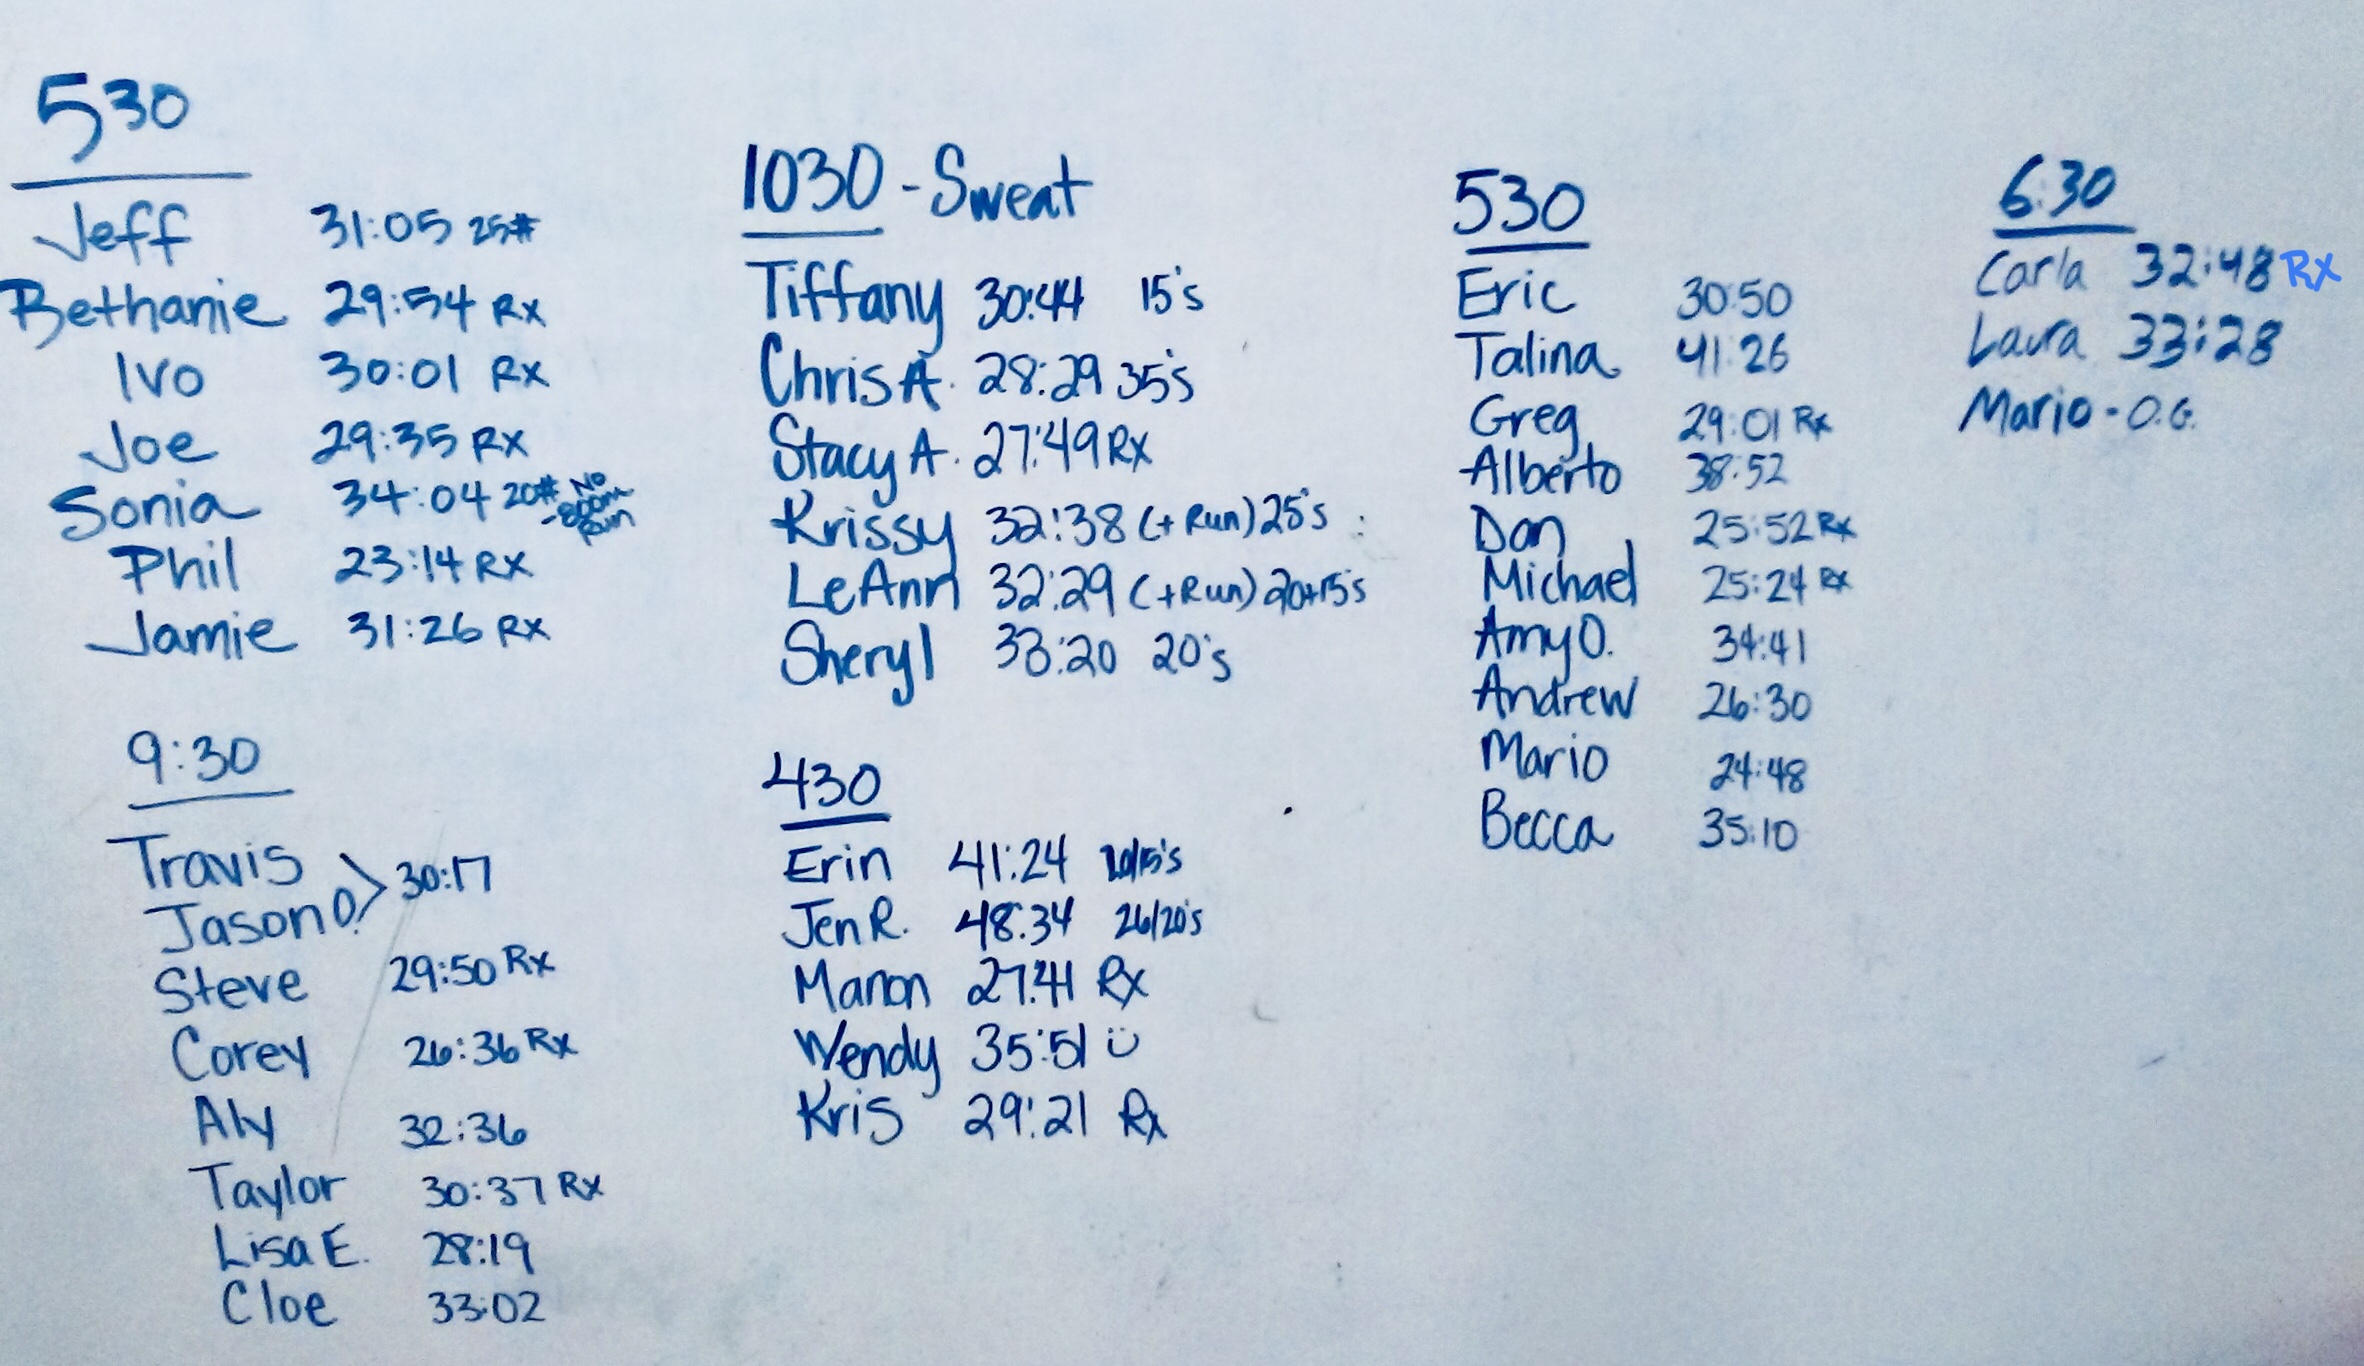 530
Jeff 31:05 25#
Bethanie 29:54 Rx
Ivo 30:01 RX
Joe 29:35 RX
Sonia 34:04 20# No
-800m
Run
Phil 23:14 RX
Jamie 31:26 RX
9:30
Travis
Jason O. > 30:17
Steve 29:50 Rx
Corey 26:36 Rx
Aly 32:36
Taylor 30:37 RX
Lisa E. 28:19
Cloe 33:02
1030 - Sweat
Tiffany 30:44 15's
Chris A. 28:29 35's
Stacy A. 27:49 RX
Krissy 32:38 (+ Run) 25's
LeAnn 32:29 (+Run) 20+15's
Sheryl 33:20 20's
430
Erin 41:24
Jen R. 48:34 26/20's
Manon 27:41 Rx
Wendy 35:51 Ü
Kris 29:21 Rx
530
Eric 30:50
Talina 41:26
Greg 29:01 Rx
Alberto 38:52
Dan 25:52 Rx
Michael 25:24 Rx
Amy O. 34:41
Andrew 26:30
Mario 24:48
Becca 35:10
6:30
Carla 32:48 RX
Laura 33:28
Mario - O.G.